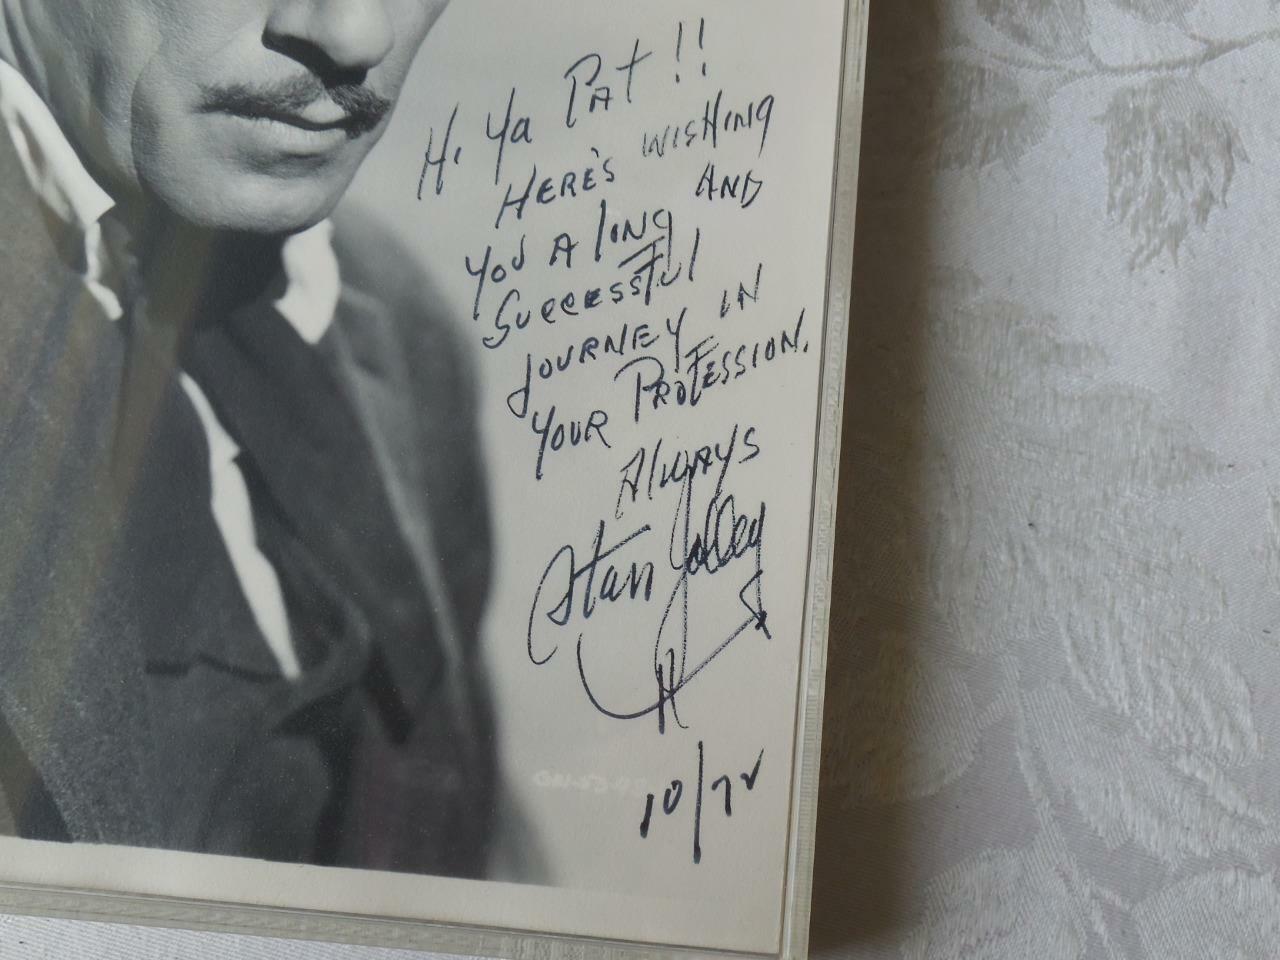 Hi Ya PAT !!
HERE'S WISHING
YOU A lONG AND
SUCCESSFUl
JOURNEY IN
YOUR PROFESSION.
AlWAYS
Stan Jolley
10/72